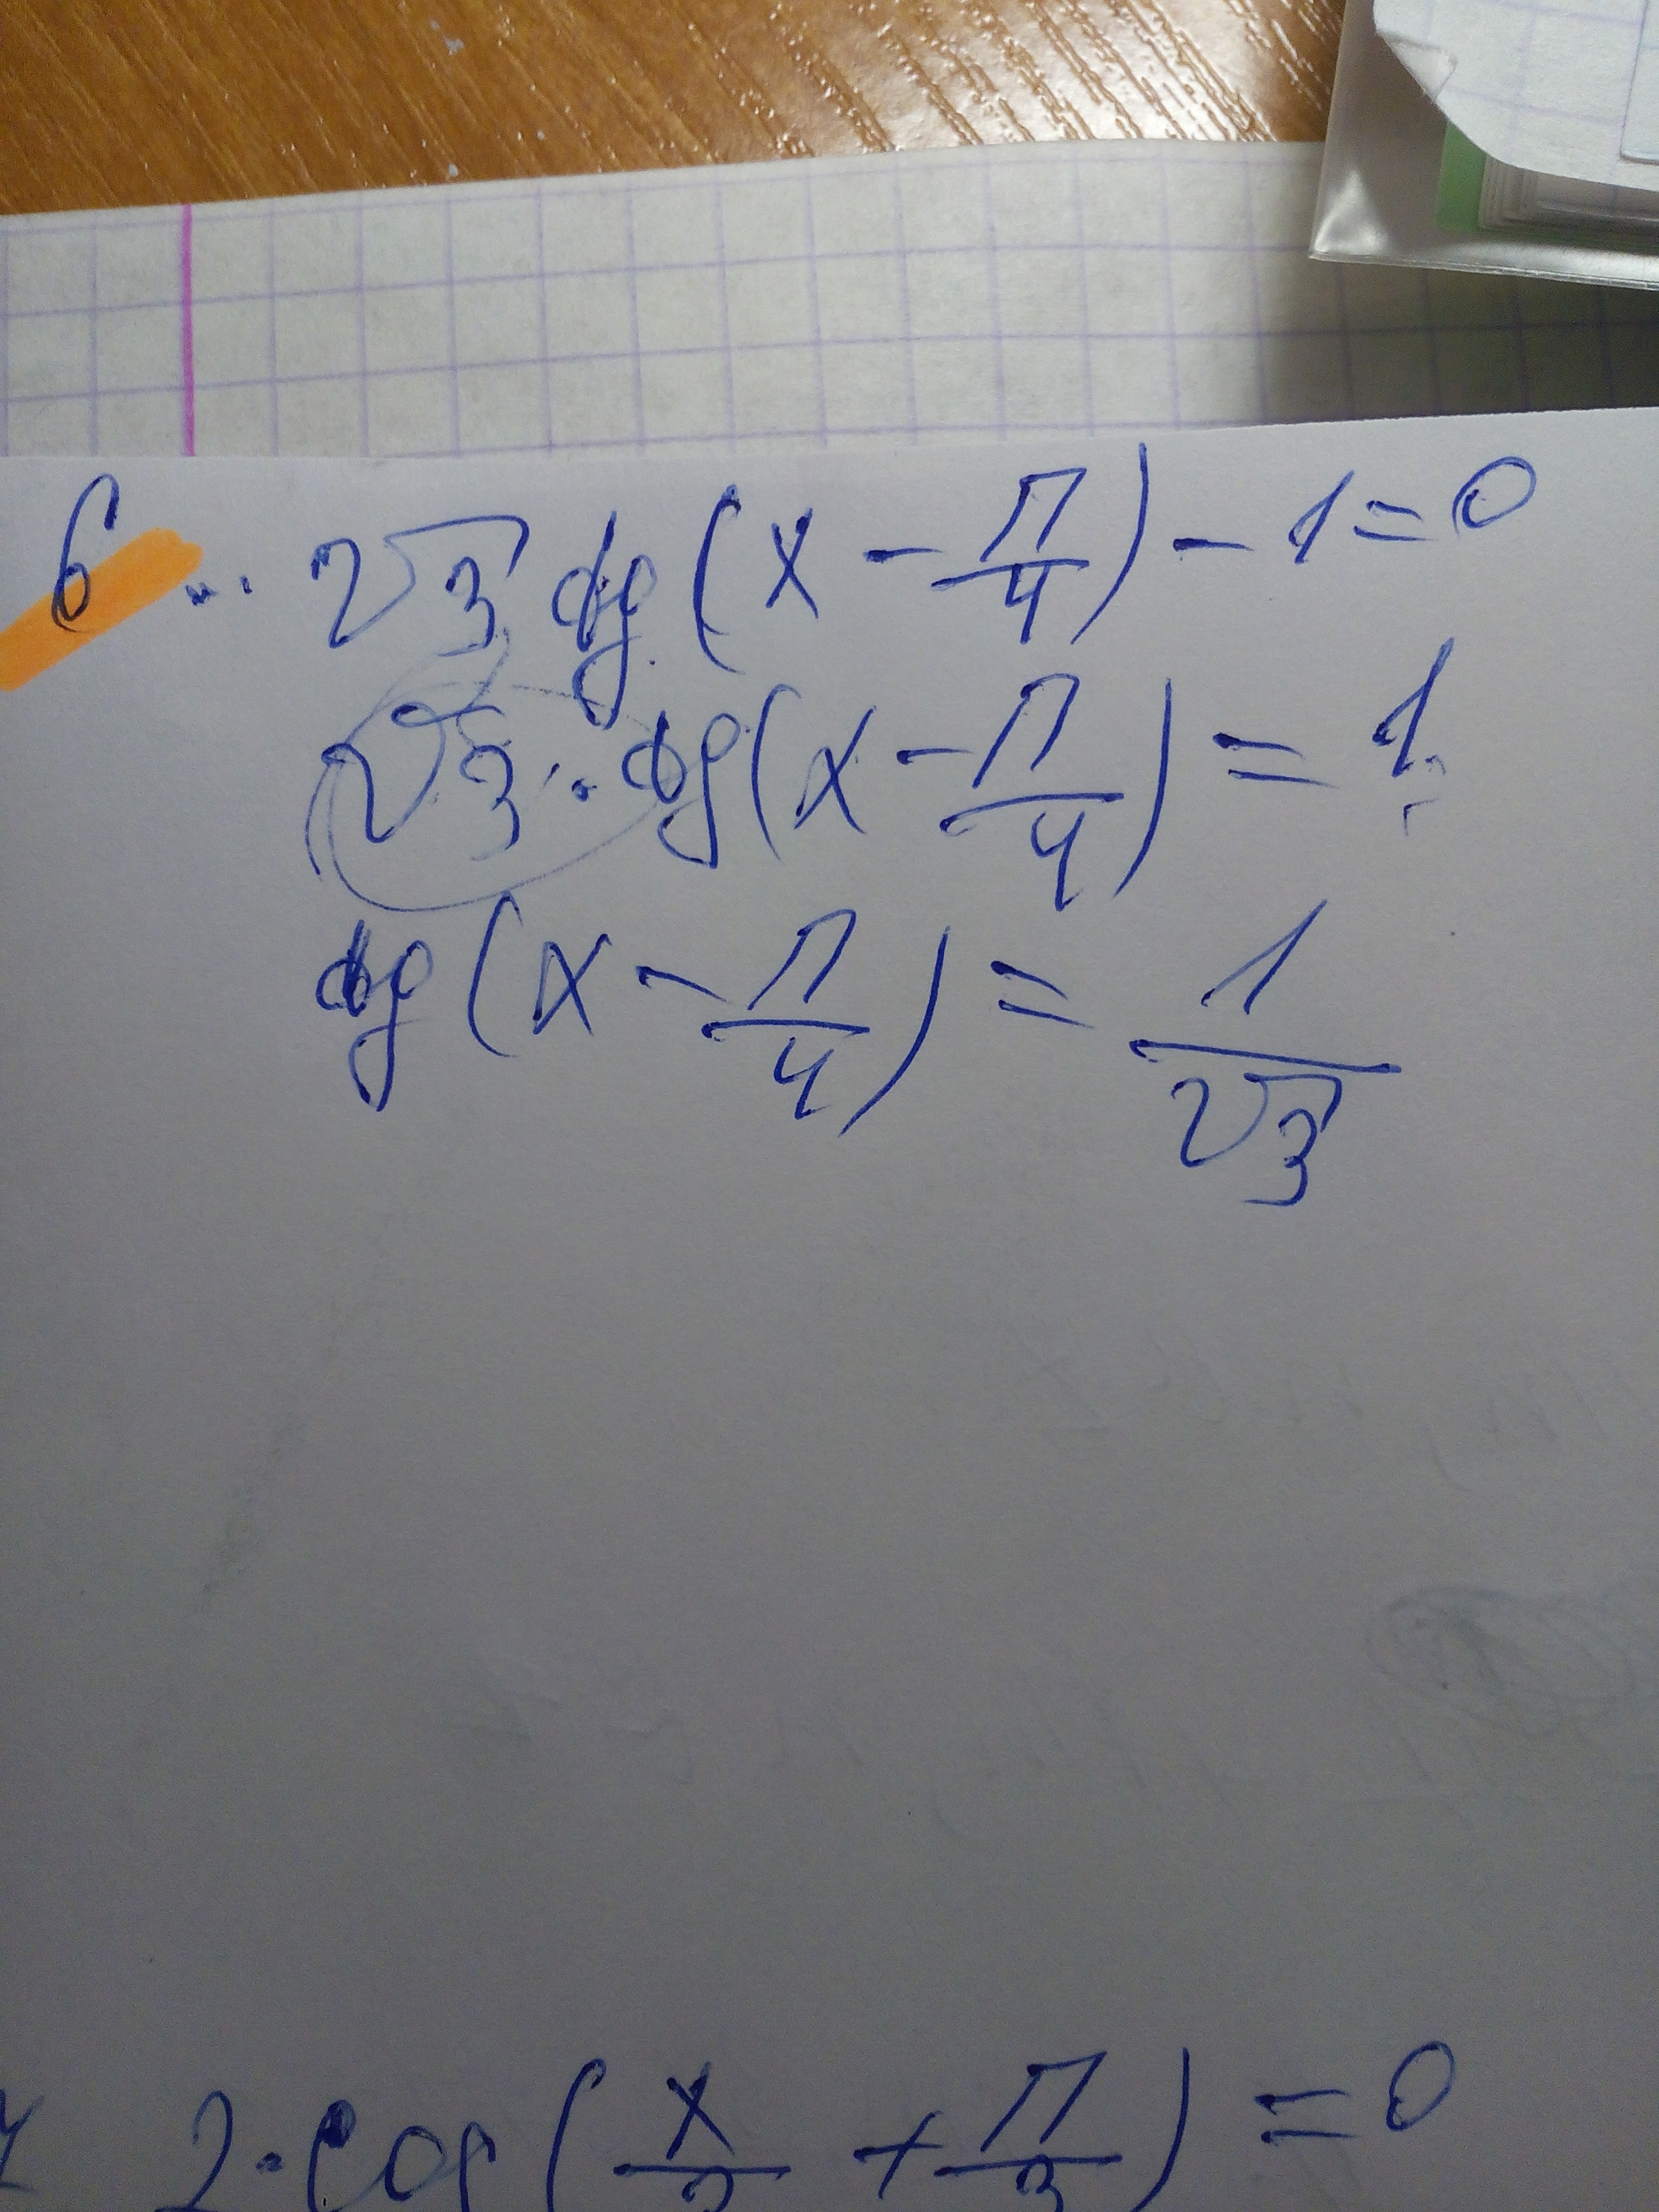 6. √3 tg(x - π/4) - 1 = 0
√3 · tg(x - π/4) = 1
tg(x - π/4) = 1/√3
2·cos(x/2 + π/3) = 0